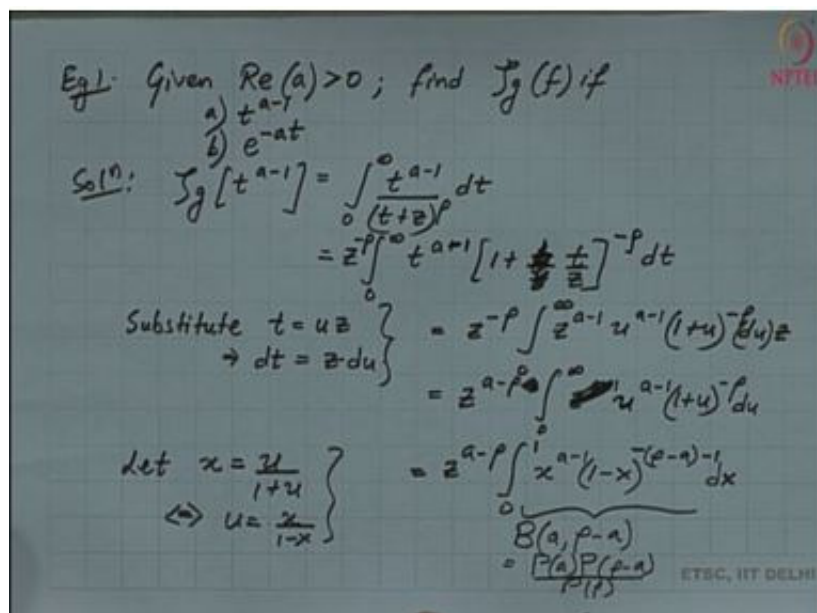 Eg1. Given Re(a)>0; find ζg(f) if
a) t^{a-1}
b) e^{-at}
NPTEL
Solⁿ: ζg[t^{a-1}] = ∫_0^∞ t^{a-1}/(t+z)^ρ dt
= z^{-ρ} ∫_0^∞ t^{a-1} [1 + t/z]^{-ρ} dt
Substitute t = uz } = z^{-ρ} ∫_0^∞ z^{a-1} u^{a-1} (1+u)^{-ρ} (du)z
⇒ dt = z·du
= z^{a-ρ} ∫_0^∞ u^{a-1} (1+u)^{-ρ} du
Let x = u/(1+u) } = z^{a-ρ} ∫_0^1 x^{a-1} (1-x)^{-(ρ-a)-1} dx
⇔ u = x/(1-x)
B(a, ρ-a)
= Γ(a)Γ(ρ-a)/Γ(ρ)
ETSC, IIT DELHI